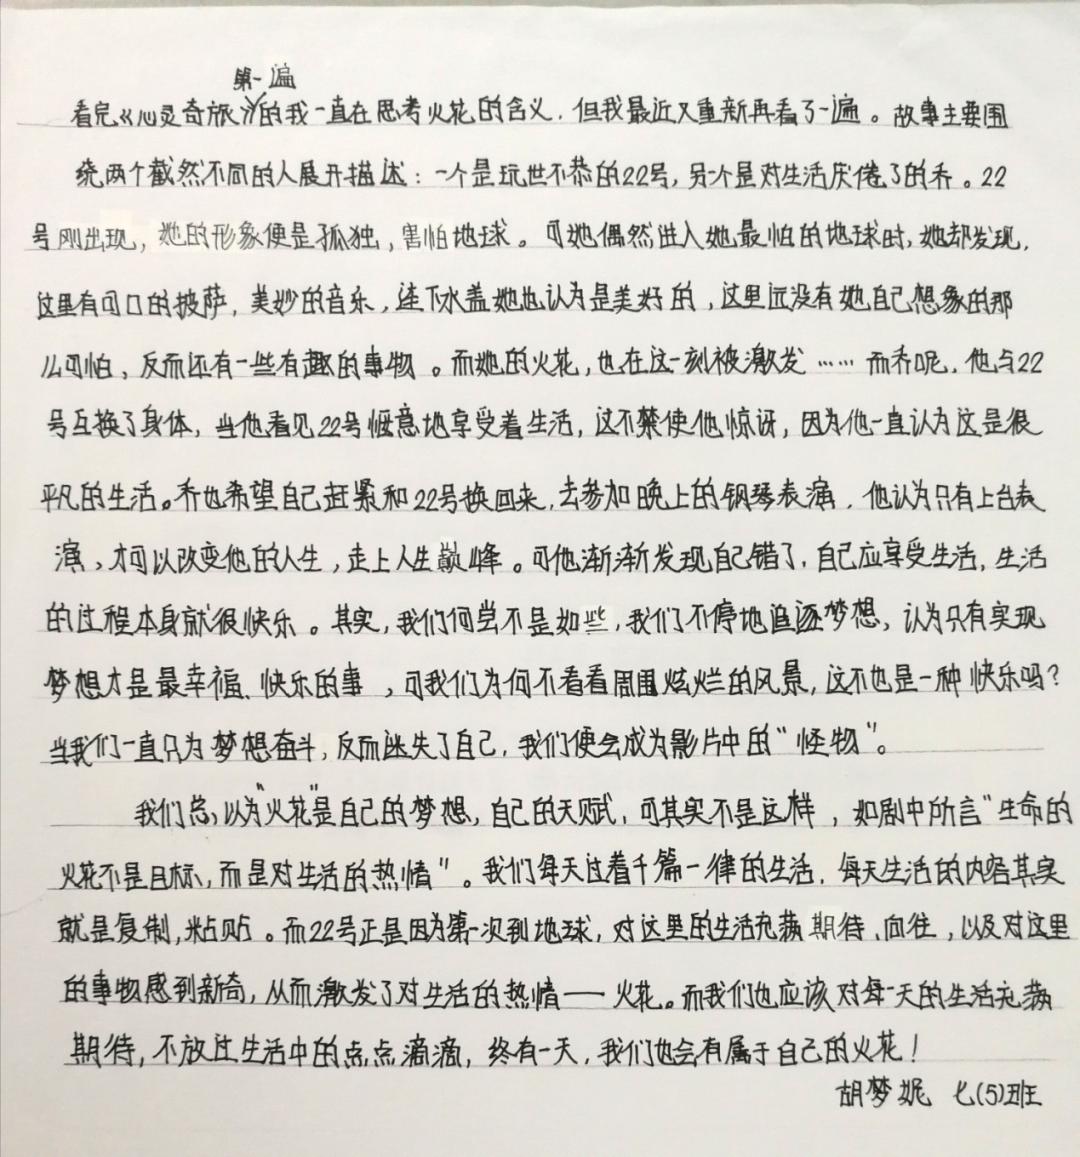 第一遍
看完《心灵奇旅》的我一直在思考火花的含义，但我最近又重新再看了一遍。故事主要围
绕两个截然不同的人展开描述：一个是玩世不恭的22号，另个是对生活厌倦了的乔。22
号刚出现，她的形象便是孤独，害怕地球。可她偶然进入她最怕的地球时，她却发现，
这里有可口的披萨，美妙的音乐，连下水盖她也认为是美好的，这里远没有她自己想象的那
么可怕，反而还有一些有趣的事物。而她的火花，也在这一刻被激发……而乔呢，他与22
号互换了身体，当他看见22号惬意地享受着生活，这不禁使他惊讶，因为他一直认为这是很
平凡的生活。乔也希望自己赶紧和22号换回来，去参加晚上的钢琴表演，他认为只有上台表
演，才可以改变他的人生，走上人生巅峰。可他渐渐发现自己错了，自己应享受生活，生活
的过程本身就很快乐。其实，我们何尝不是如些，我们不停地追逐梦想，认为只有实现
梦想才是最幸福、快乐的事，可我们为何不看看周围炫烂的风景，这不也是一种快乐吗？
当我们一直只为梦想奋斗，反而迷失了自己，我们便会成为影片中的“怪物”。
我们总以为“火花”是自己的梦想，自己的天赋，可其实不是这样，如剧中所言“生命的
火花不是目标，而是对生活的热情”。我们每天过着千篇一律的生活，每天生活的内容其实
就是复制，粘贴。而22号正是因为第一次到地球，对这里的生活充满期待、向往，以及对这里
的事物感到新奇，从而激发了对生活的热情——火花。而我们也应该对每一天的生活充满
期待，不放过生活中的点点滴滴，终有一天，我们也会有属于自己的火花！
胡梦妮 七(5)班